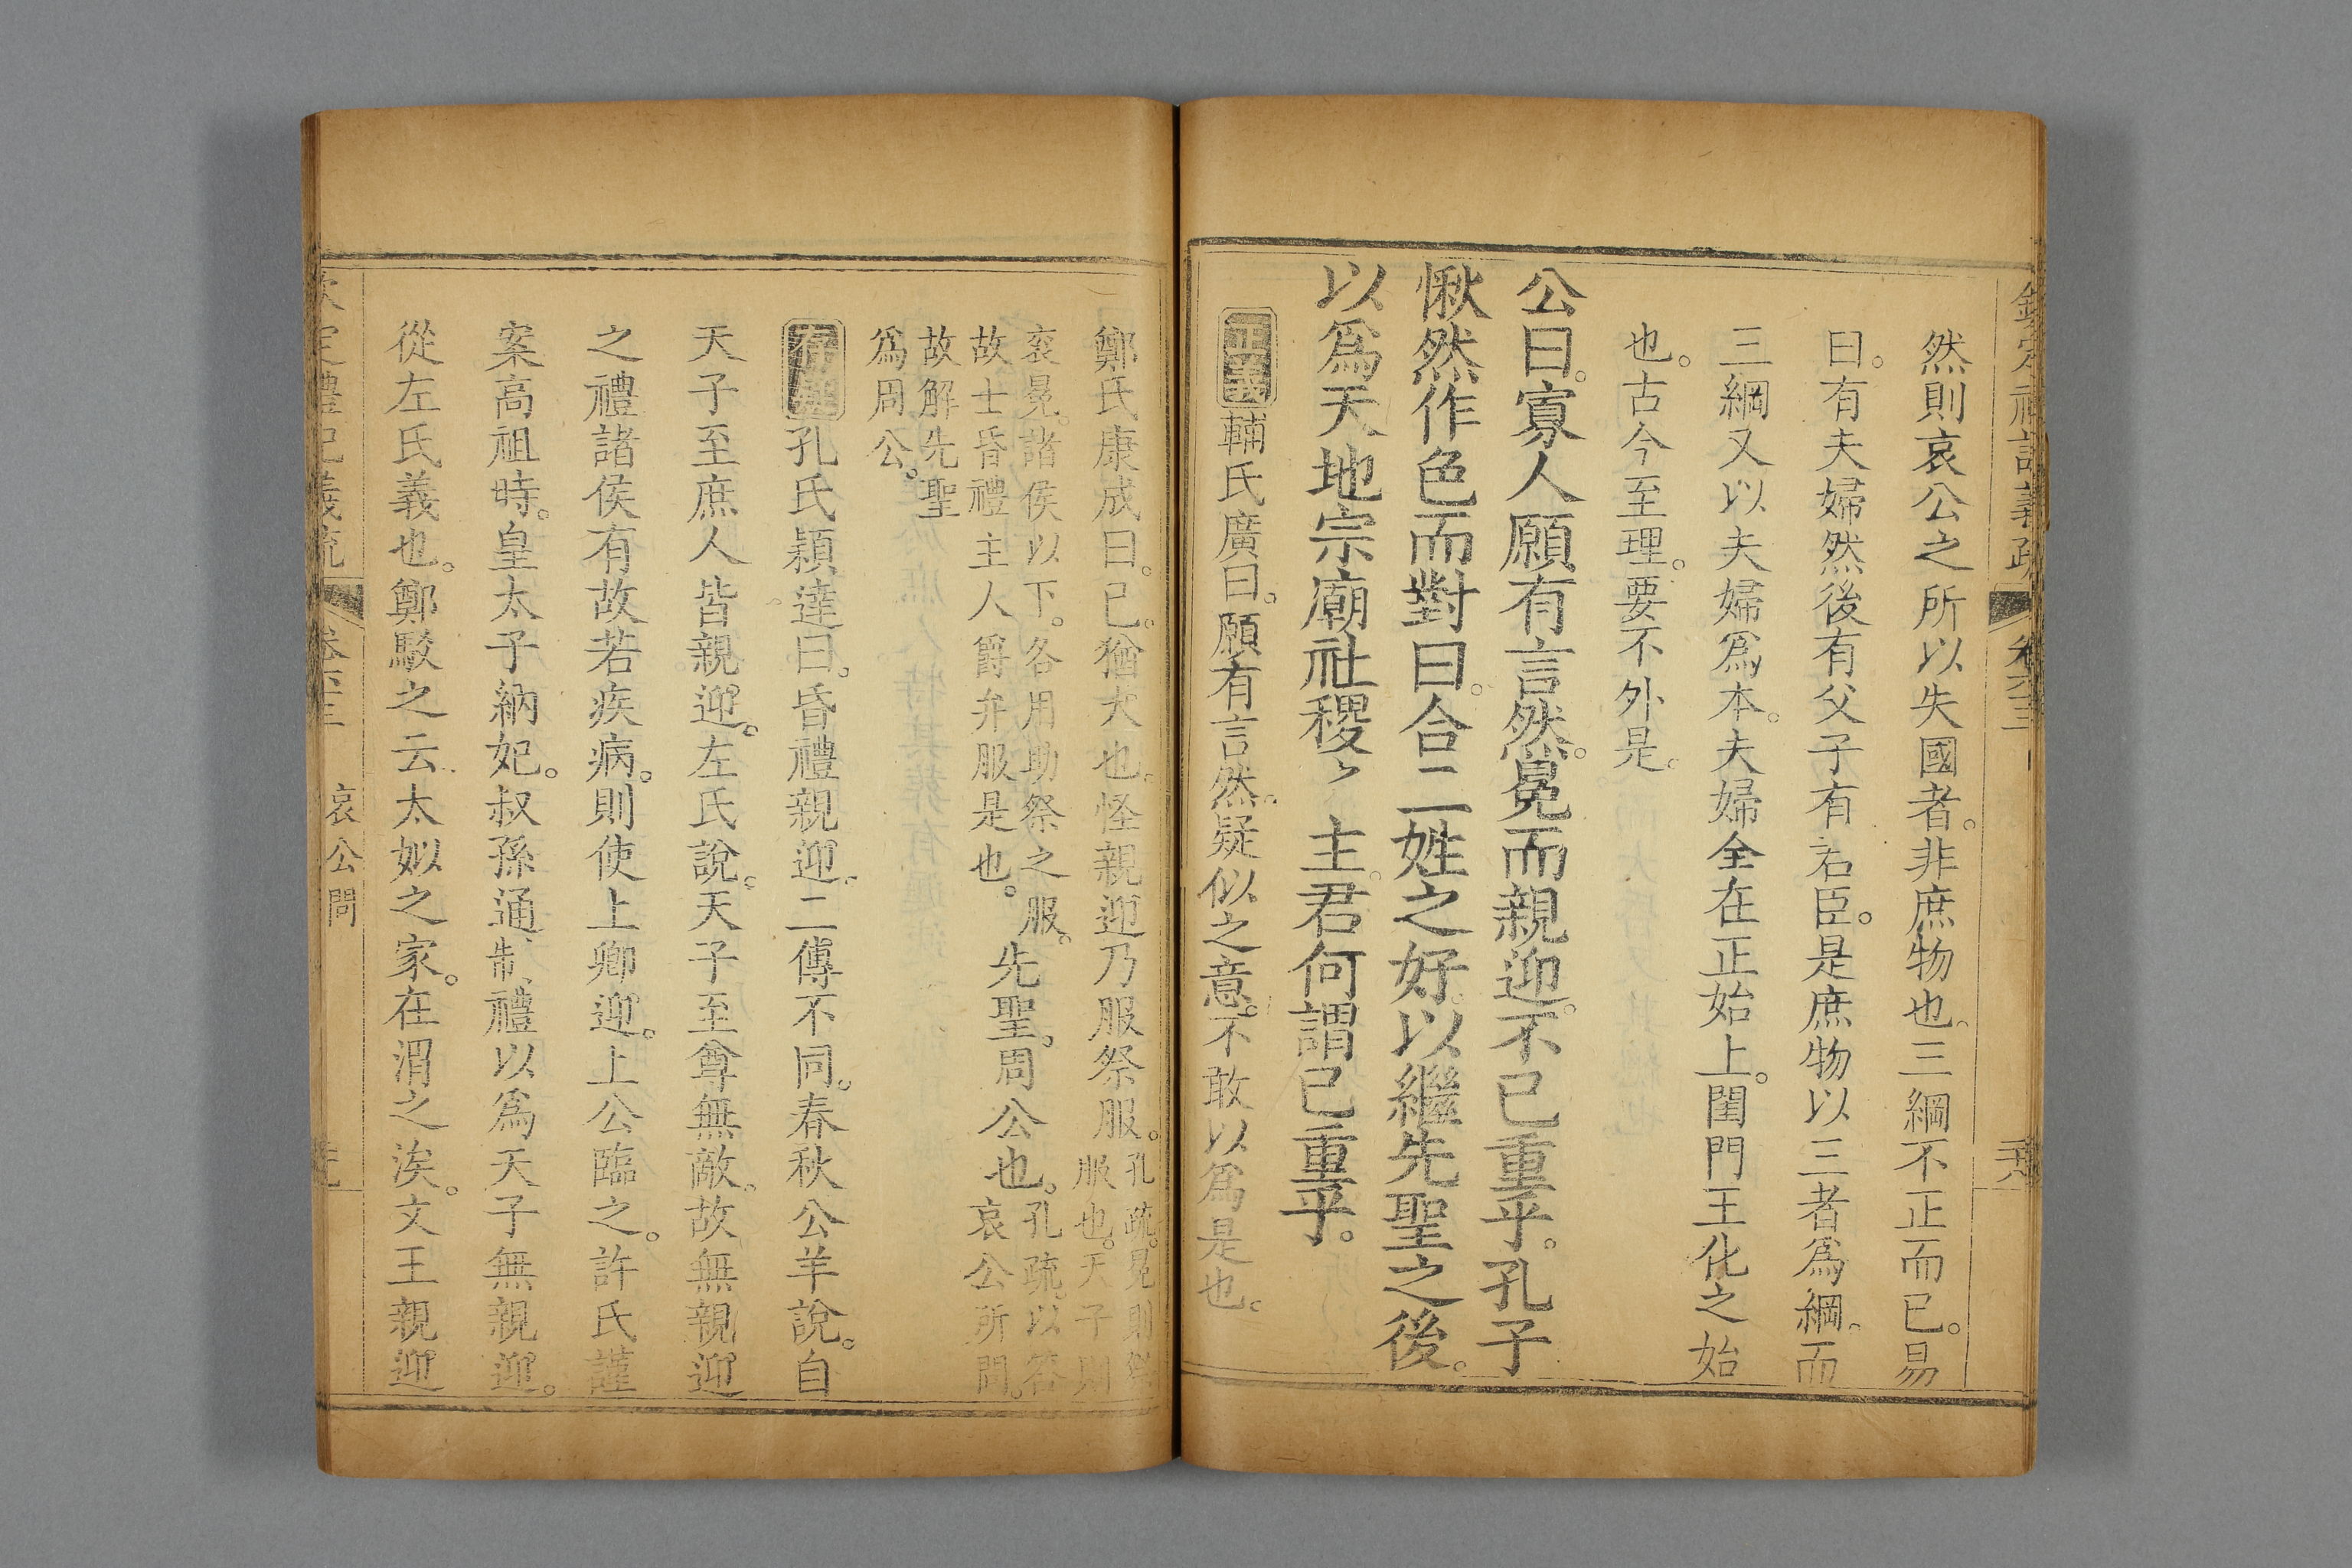 欽定禮記義疏 卷六十三
然則哀公之所以失國者。非庶物也。三綱不正而已。易
曰。有夫婦然後有父子有君臣。是庶物以三者爲綱。而
三綱又以夫婦爲本。夫婦全在正始上。閨門王化之始
也。古今至理。要不外是。
公曰。寡人願有言然。冕而親迎。不已重乎。孔子
愀然作色而對曰。合二姓之好。以繼先聖之後。
以爲天地宗廟社稷之主。君何謂已重乎。
正義輔氏廣曰。願有言然。疑似之意。不敢以爲是也。
鄭氏康成曰。已。猶大也。怪親迎乃服祭服。
孔疏。冕則祭
服也。天子則
袞冕。諸侯以下。各用助祭之服。
故士昏禮主人爵弁服是也。
先聖。周公也。
孔疏。以答
哀公所問。
故解先聖
爲周公。
存異孔氏穎達曰。昏禮親迎。二傳不同。春秋公羊說。自
天子至庶人皆親迎。左氏說。天子至尊無敵。故無親迎
之禮諸侯有故若疾病。則使上卿迎。上公臨之。許氏謹
案高祖時。皇太子納妃。叔孫通制禮以爲天子無親迎。
從左氏義也。鄭駁之云太姒之家。在渭之涘。文王親迎
欽定禮記義疏 卷六十三 哀公問